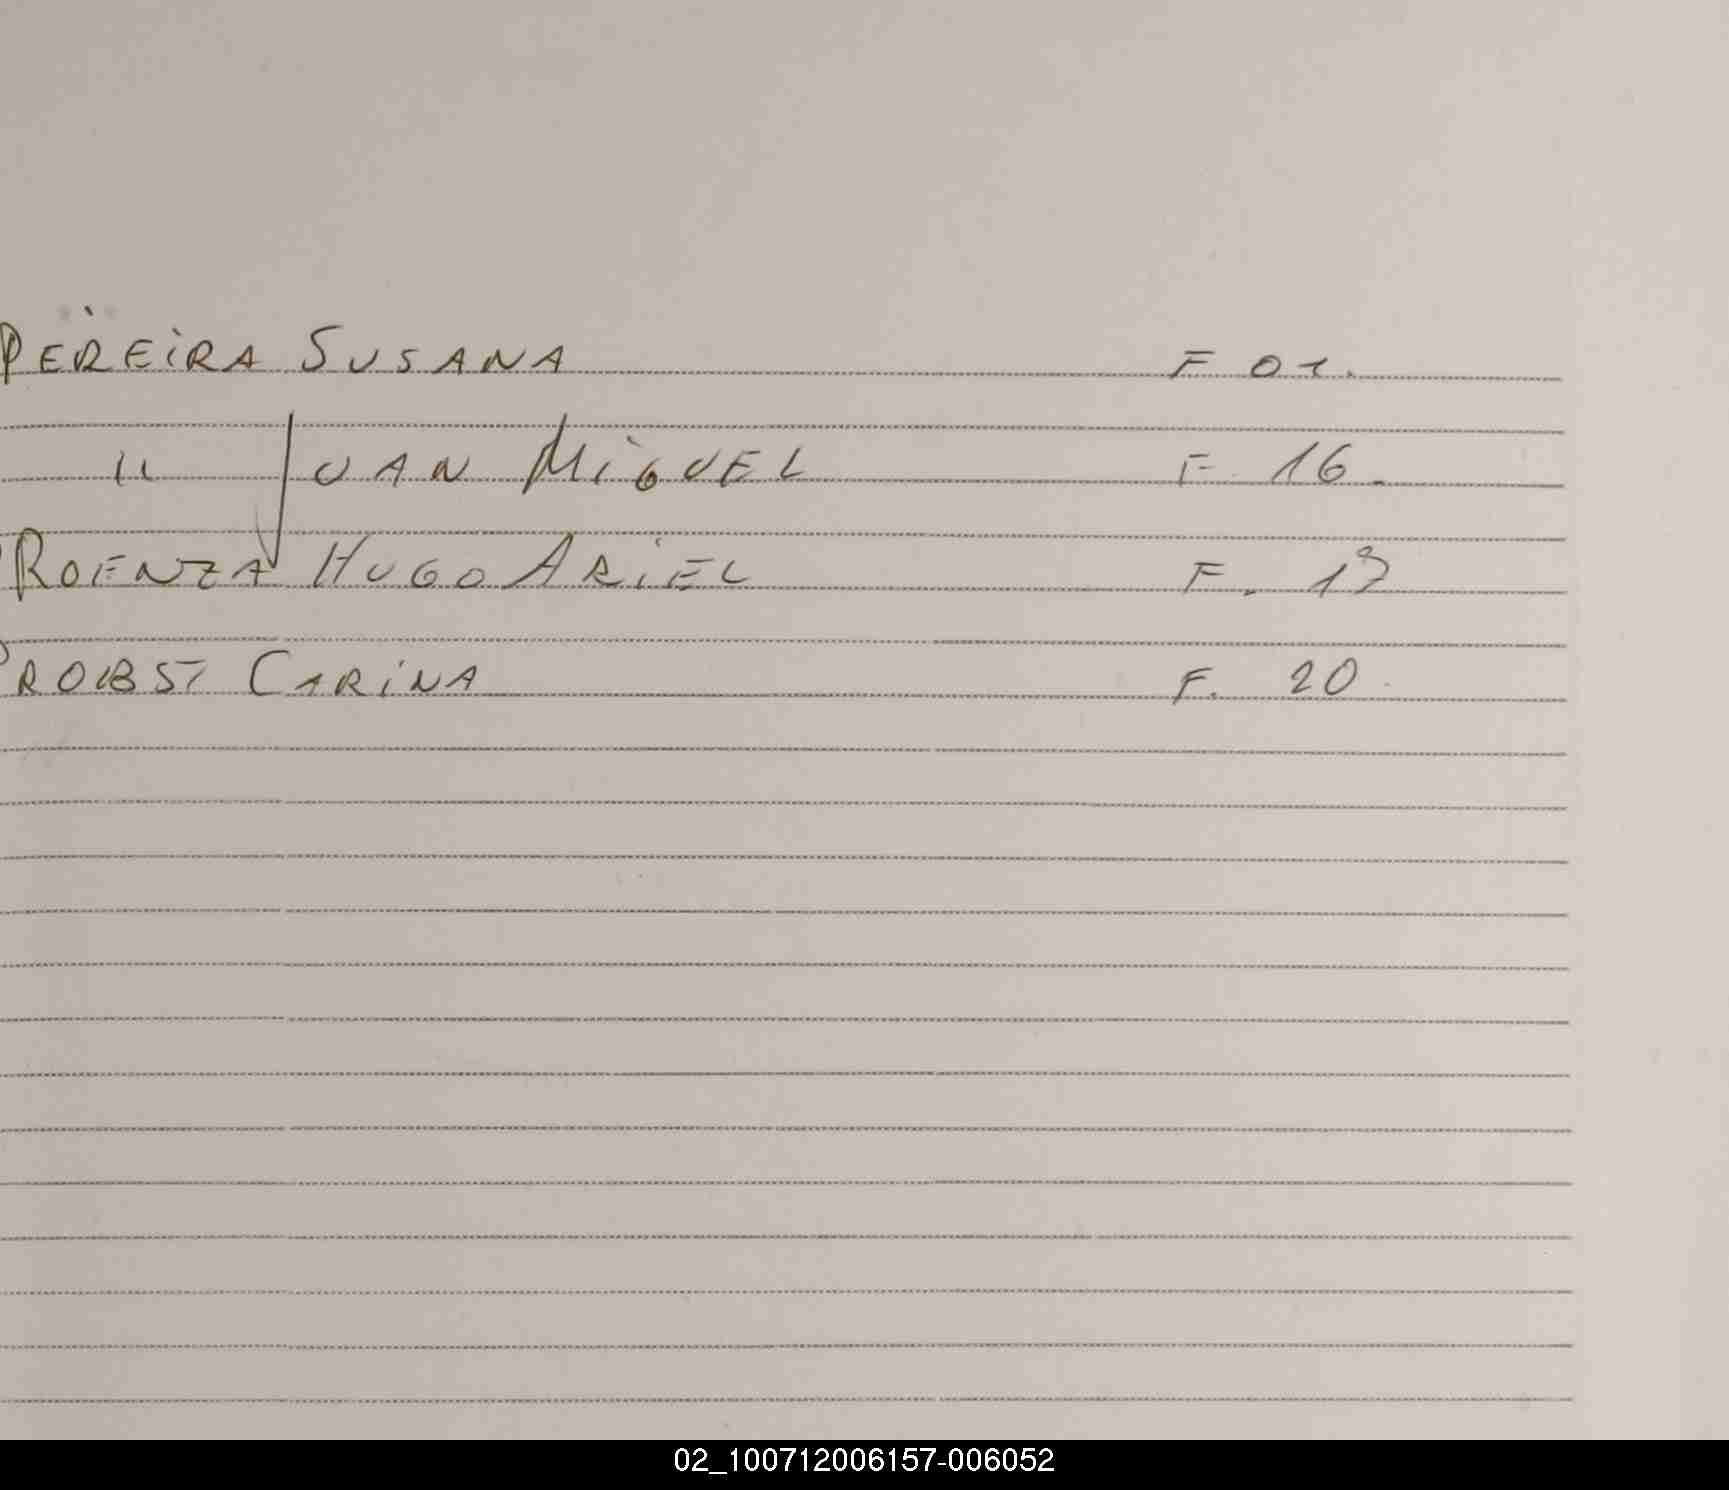 PEREIRA SUSANA F 01.
" JUAN MIGUEL F. 16.
PROENZA HUGO ARIEL F. 19
PROBST CARINA F. 20
02_100712006157-006052